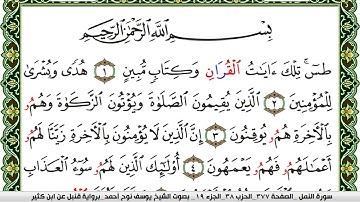 بِسْمِ اللَّهِ الرَّحْمَٰنِ الرَّحِيمِ
طسٓ ۚ تِلْكَ ءَايَٰتُ الْقُرَانِ وَكِتَابٍ مُّبِينٍ ١ هُدًى وَبُشْرَىٰ
لِلْمُؤْمِنِينَ ٢ الَّذِينَ يُقِيمُونَ الصَّلَوٰةَ وَيُؤْتُونَ الزَّكَوٰةَ وَهُمُۥ
بِالْآخِرَةِ هُمُۥ يُوقِنُونَ ٣ إِنَّ الَّذِينَ لَا يُؤْمِنُونَ بِالْآخِرَةِ زَيَّنَّا لَهُمُۥ
أَعْمَٰلَهُمُۥ فَهُمُۥ يَعْمَهُونَ ٤ أُوْلَٰٓئِكَ الَّذِينَ لَهُمُۥ سُوٓءُ الْعَذَابِ
سورة النمل . الصفحة ٣٧٧ الحزب ٣٨ . الجزء ١٩ . بصوت الشيخ يوسف نوح أحمد برواية قنبل عن ابن كثير